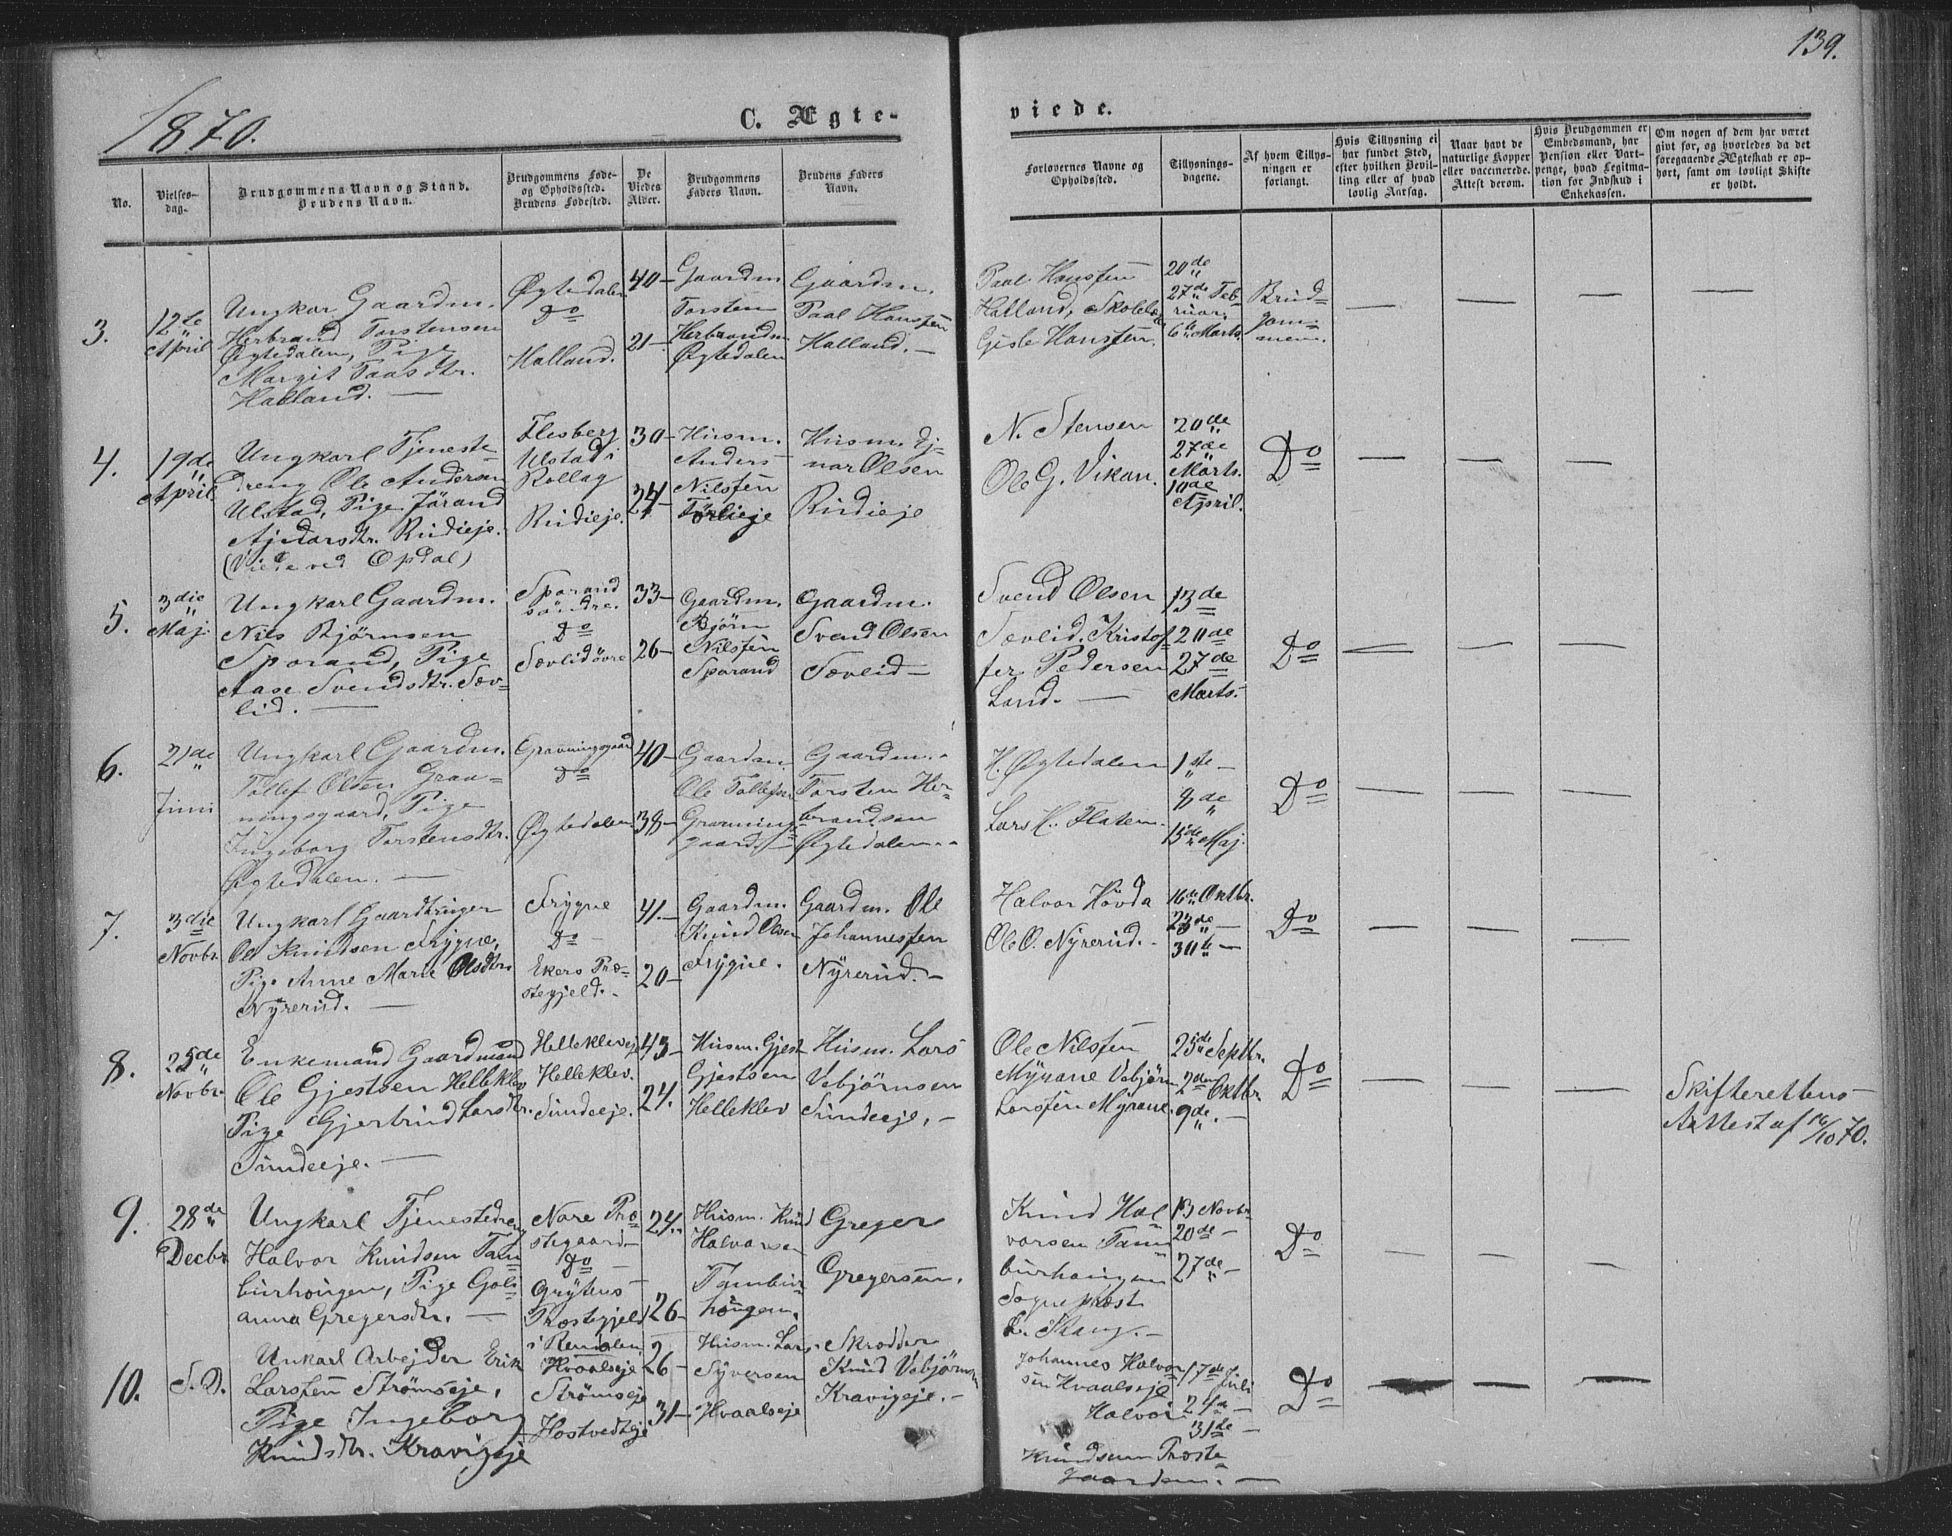 139.
1870.
C. Ægte-
viede.
No.
Vielses-
dag.
Brudgommens Navn og Stand.
Brudens Navn.
Brudgommens Føde-
og Opholdssted.
Brudens Fødested.
De
Viedes
Alder.
Brudgommens
Faders Navn.
Brudens Faders
Navn.
Forlovernes Navne og
Opholdssted.
Tillysnings-
dagene.
Af hvem Tillys-
ningen er
forlangt.
Hvis Tillysning ei
har fundet Sted,
efter hvilken Bevil-
ling eller af hvad
lovlig Aarsag.
Naar havt de
naturlige Kopper
eller vaccinerede.
Attest derom.
Hvis Brudgommen er
Embedsmand, har
Pension eller Vart-
penge, hvad Legitima-
tion for Indskud i
Enkekassen.
Om nogen af dem har været
givt for, og hvorledes da det
foregaaende Ægteskab er op-
hørt, samt om lovligt Skifte
er holdt.
3.
12te
April
Ungkar Gaardm.
Herbrand Torstensen
Øgtedalen, Pige
Margit Paasdtr.
Halland. —
Øgtedalen
Do
Halland.
40-
21-
Gaardm
Torsten
Herbrandsn
Øgtedalen
Gaardm.
Paal Hansen
Halland. —
Paal Hansen
Halland, Skolel.
Gisle Hansen.
20de
27de Feb-
ruar.
6te Marts.
Brud-
gom-
men.
4.
19de
April
Ungkarl Tjeneste
dreng Ole Andersen
Ulstad, Pige Jørand
Ajnarsdtr. Rudieje.
(Viede ved Opdal)
Flesberg
Ulstad i
Rollag
Rudieje.
30-
24-
Husm.
Anders
Nilsen
Førlieje
Husm. Ej-
nar Olsen
Rudieje
N. Stensen
Ole G. Vikan.
20de
27de
Marts.
10de
April.
Do
5.
3die
Maj.
Ungkarl Gaardm.
Nils Bjørnsen
Sporand, Pige
Aase Svendsdtr. Sæv-
lid. —
Sporand
søndre.
Do
Sævlid øvre
33-
26-
Gaardm.
Bjørn
Nilsen
Sporand
Gaardm.
Svend Olsen
Sævlid —
Svend Olsen
Sevlid. Kristof
fer Pedersen
Land. —
13de
20de
27de
Marts.
Do
6.
21de
Juni
Ungkarl Gaardm.
Tollef Olsen Grav-
ningsgaard, Pige
Ingeborg Torstensdtr.
Øgtedalen. —
Gravningsgaard
Do
Øgtedalen
40-
38-
Gaardm.
Ole Tollefsen
Gravnings-
gaard. —
Gaardm.
Torsten Her-
brandsen
Øgtedalen.
H. Øgtedalen
Lars H. Flaten.
1ste —
8de
15de Maj.
Do
7.
3die
Novbr.
Ungkarl Gaardbruger
Ole Knudsen Frygne,
Pige Anne Marie Olsdtr.
Nyrerud. —
Frygne
Do —
Ekers Præ-
stegjeld.
41.-
20-
Gaardm.
Knud Olsen
Frygne.
Gaardm. Ole
Johannesen
Nyrerud. —
Halvor Hovda
Ole O. Nyrerud.
16de Oktbr.
23de —
30te —
Do
8.
25de
Novbr.
Enkemand Gaardmand
Ole Gjestsen Helleklev
Pige Gjertrud Larsdtr.
Sundeeje. —
Hellekleveje
Helleklev.
Sundeeje.
43-
24.
Husm. Gjest
Gjestsen
Helleklev
Husm. Lars
Vebjørnsen
Sundeeje. —
Ole Nilsen
Myrane Vebjørn
Larsen Myrane.
25de Septbr.
2den Oktbr.
9de. —
Do
Skifterettens
Attest af 14/10 70.
9.
28de
Decbr
Ungkarl Tjenestedreng
Halvor Knudsen Tam
burhougen, Pige Goli
anna Gregersdtr. —
Nore Præ
stegaard
Do —
Grytens
Præstegjeld
i Romsdalen
24.
26-
Husm. Knud
Halvorsen
Tambur
hougen.
Greger
Gregersen.
Knud Hal
vorsen Tam
burhaugen
Sogneprest
L. Skang. —
13 Novbr.
20de —
27de —
Do
10.
S. D.
Unkarl Arbejder Erik
Larsen Strømseje,
Pige Ingeborg
Knudsdtr. Kravigeje
Hvaalseje
Strømseje
Hostvedteje
26-
31-
Husm. Lars
Syversen
Hvaalseje
Skrædder
Knud Vebjørnsen
Kravigeje. —
Johannes Halvor
sen Hvaalseje
Halvor
Knudsen Præste
gaarden. —
17de Juli
24de —
31de —
Do